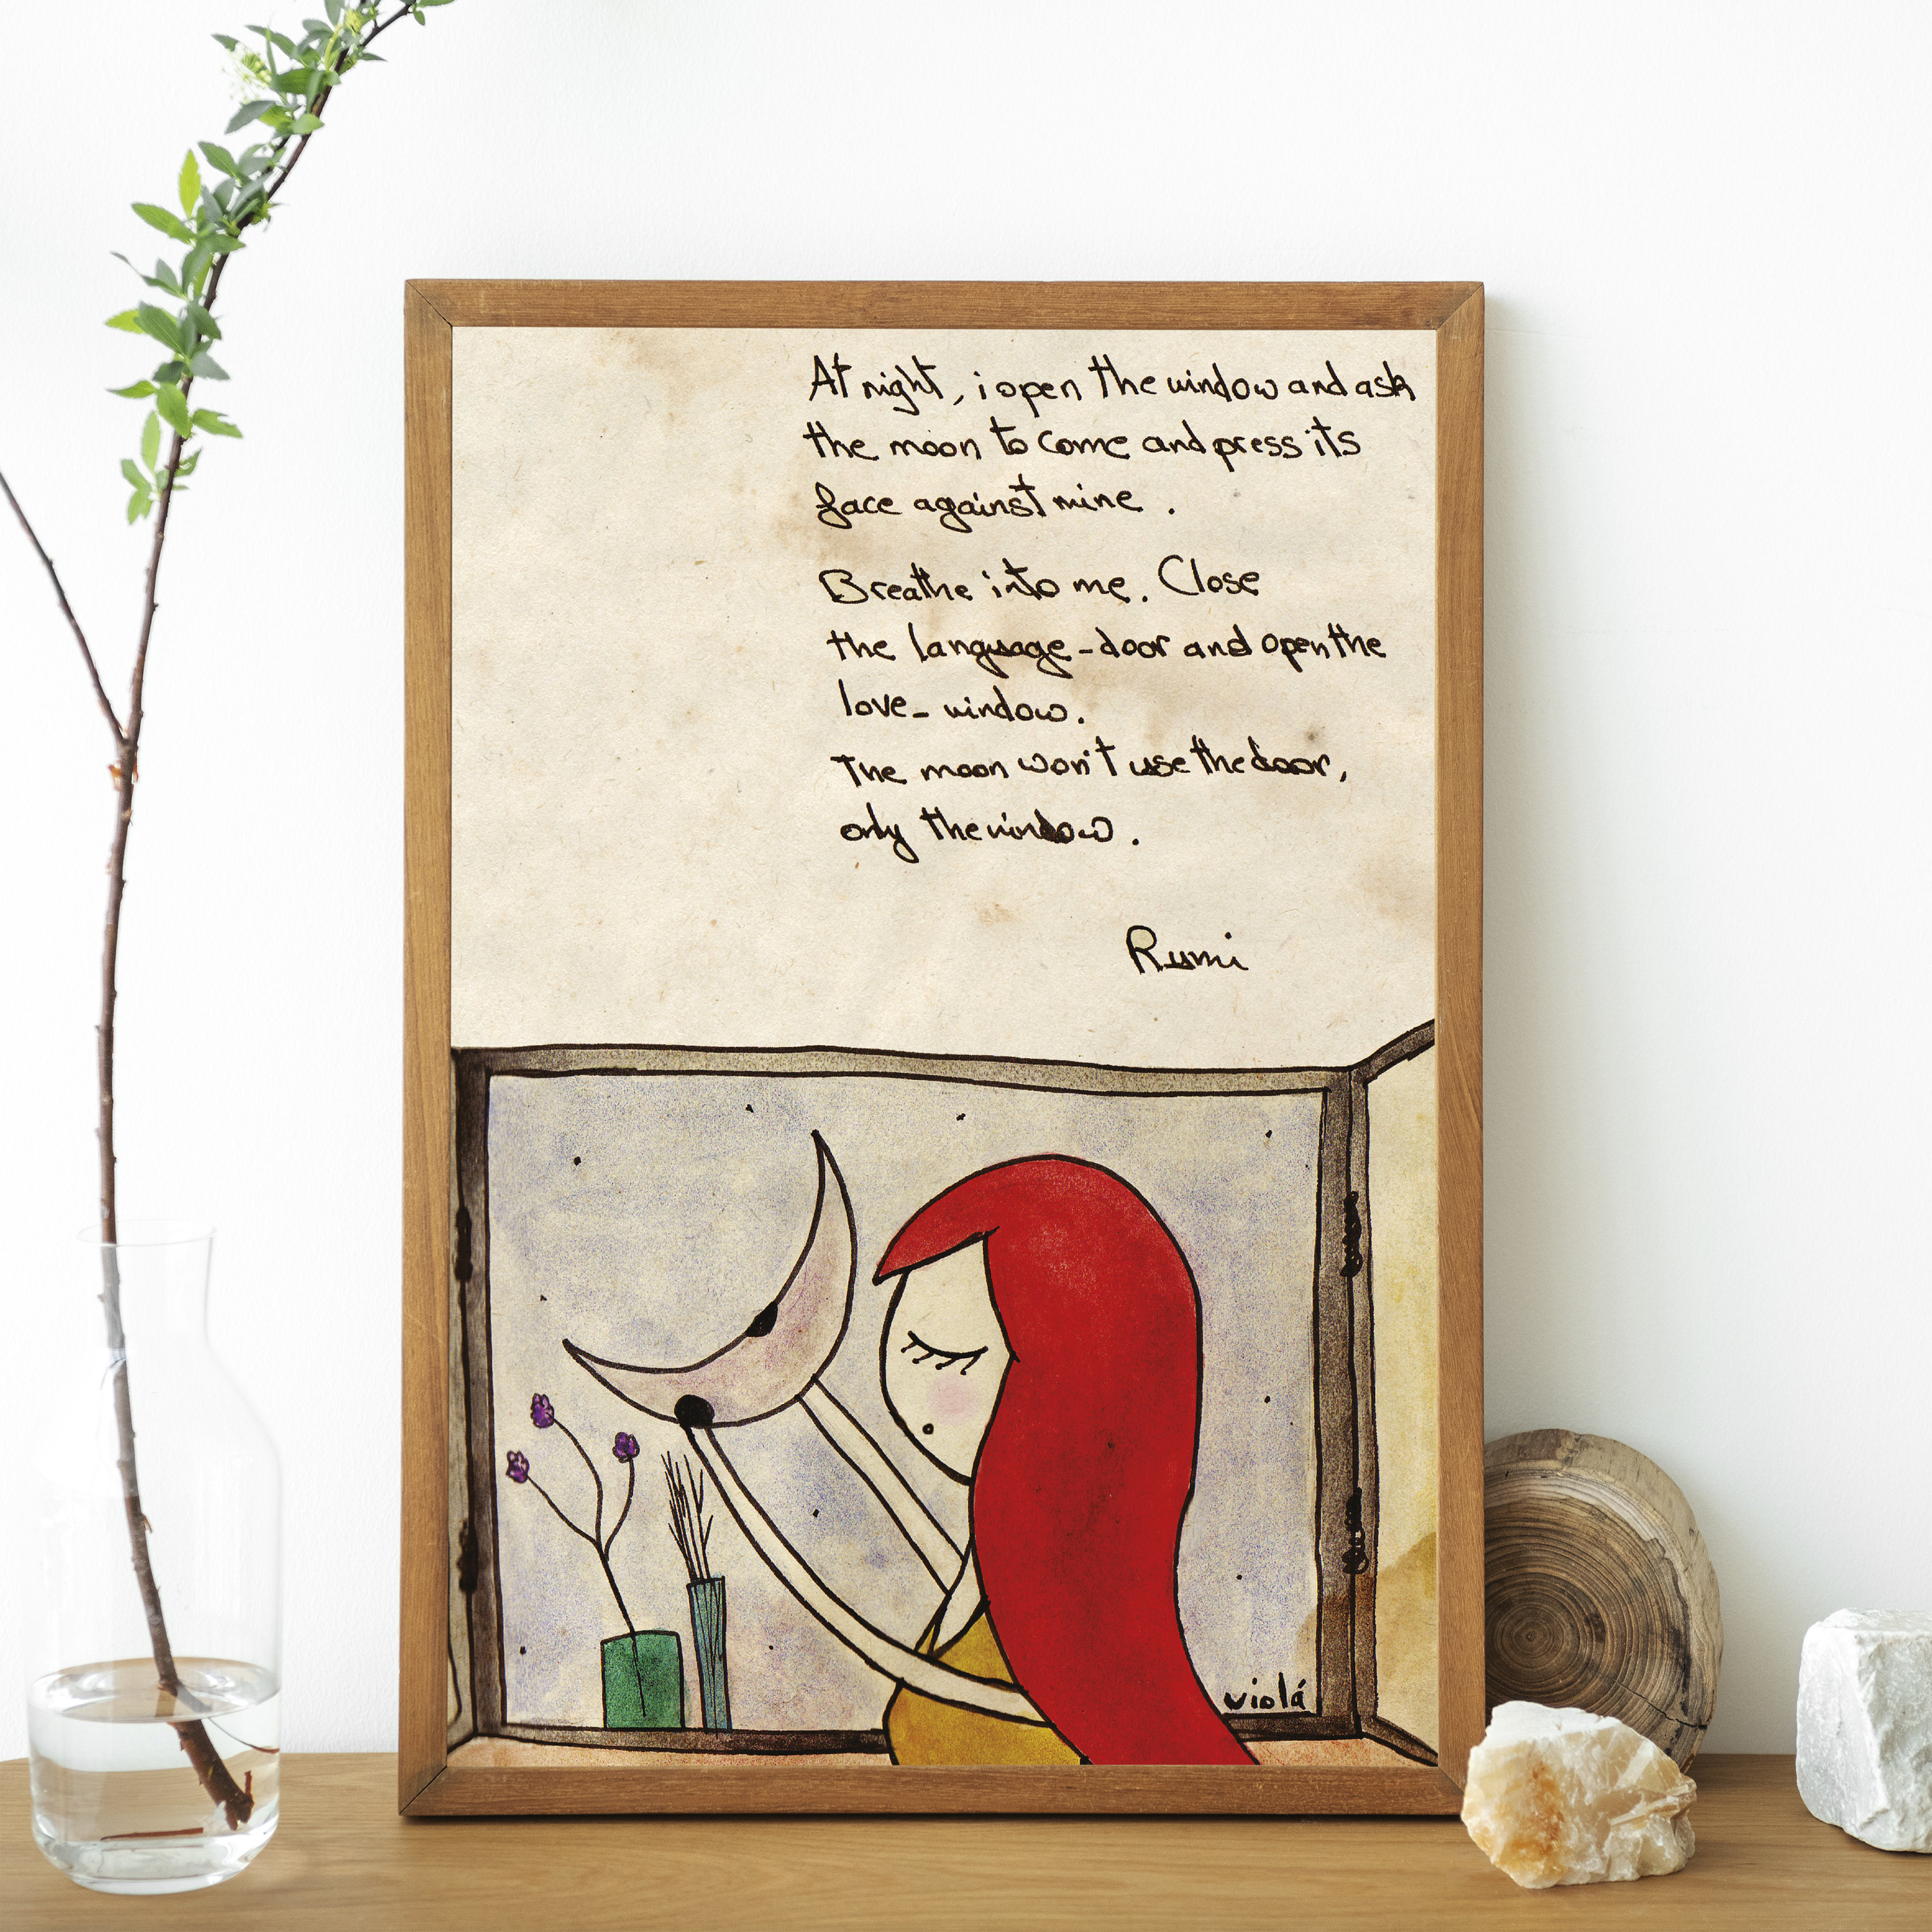 At night, i open the window and ask
the moon to come and press its
face against mine.
Breathe into me. Close
the language-door and open the
love-window.
The moon won't use the door,
only the window.
Rumi
violá